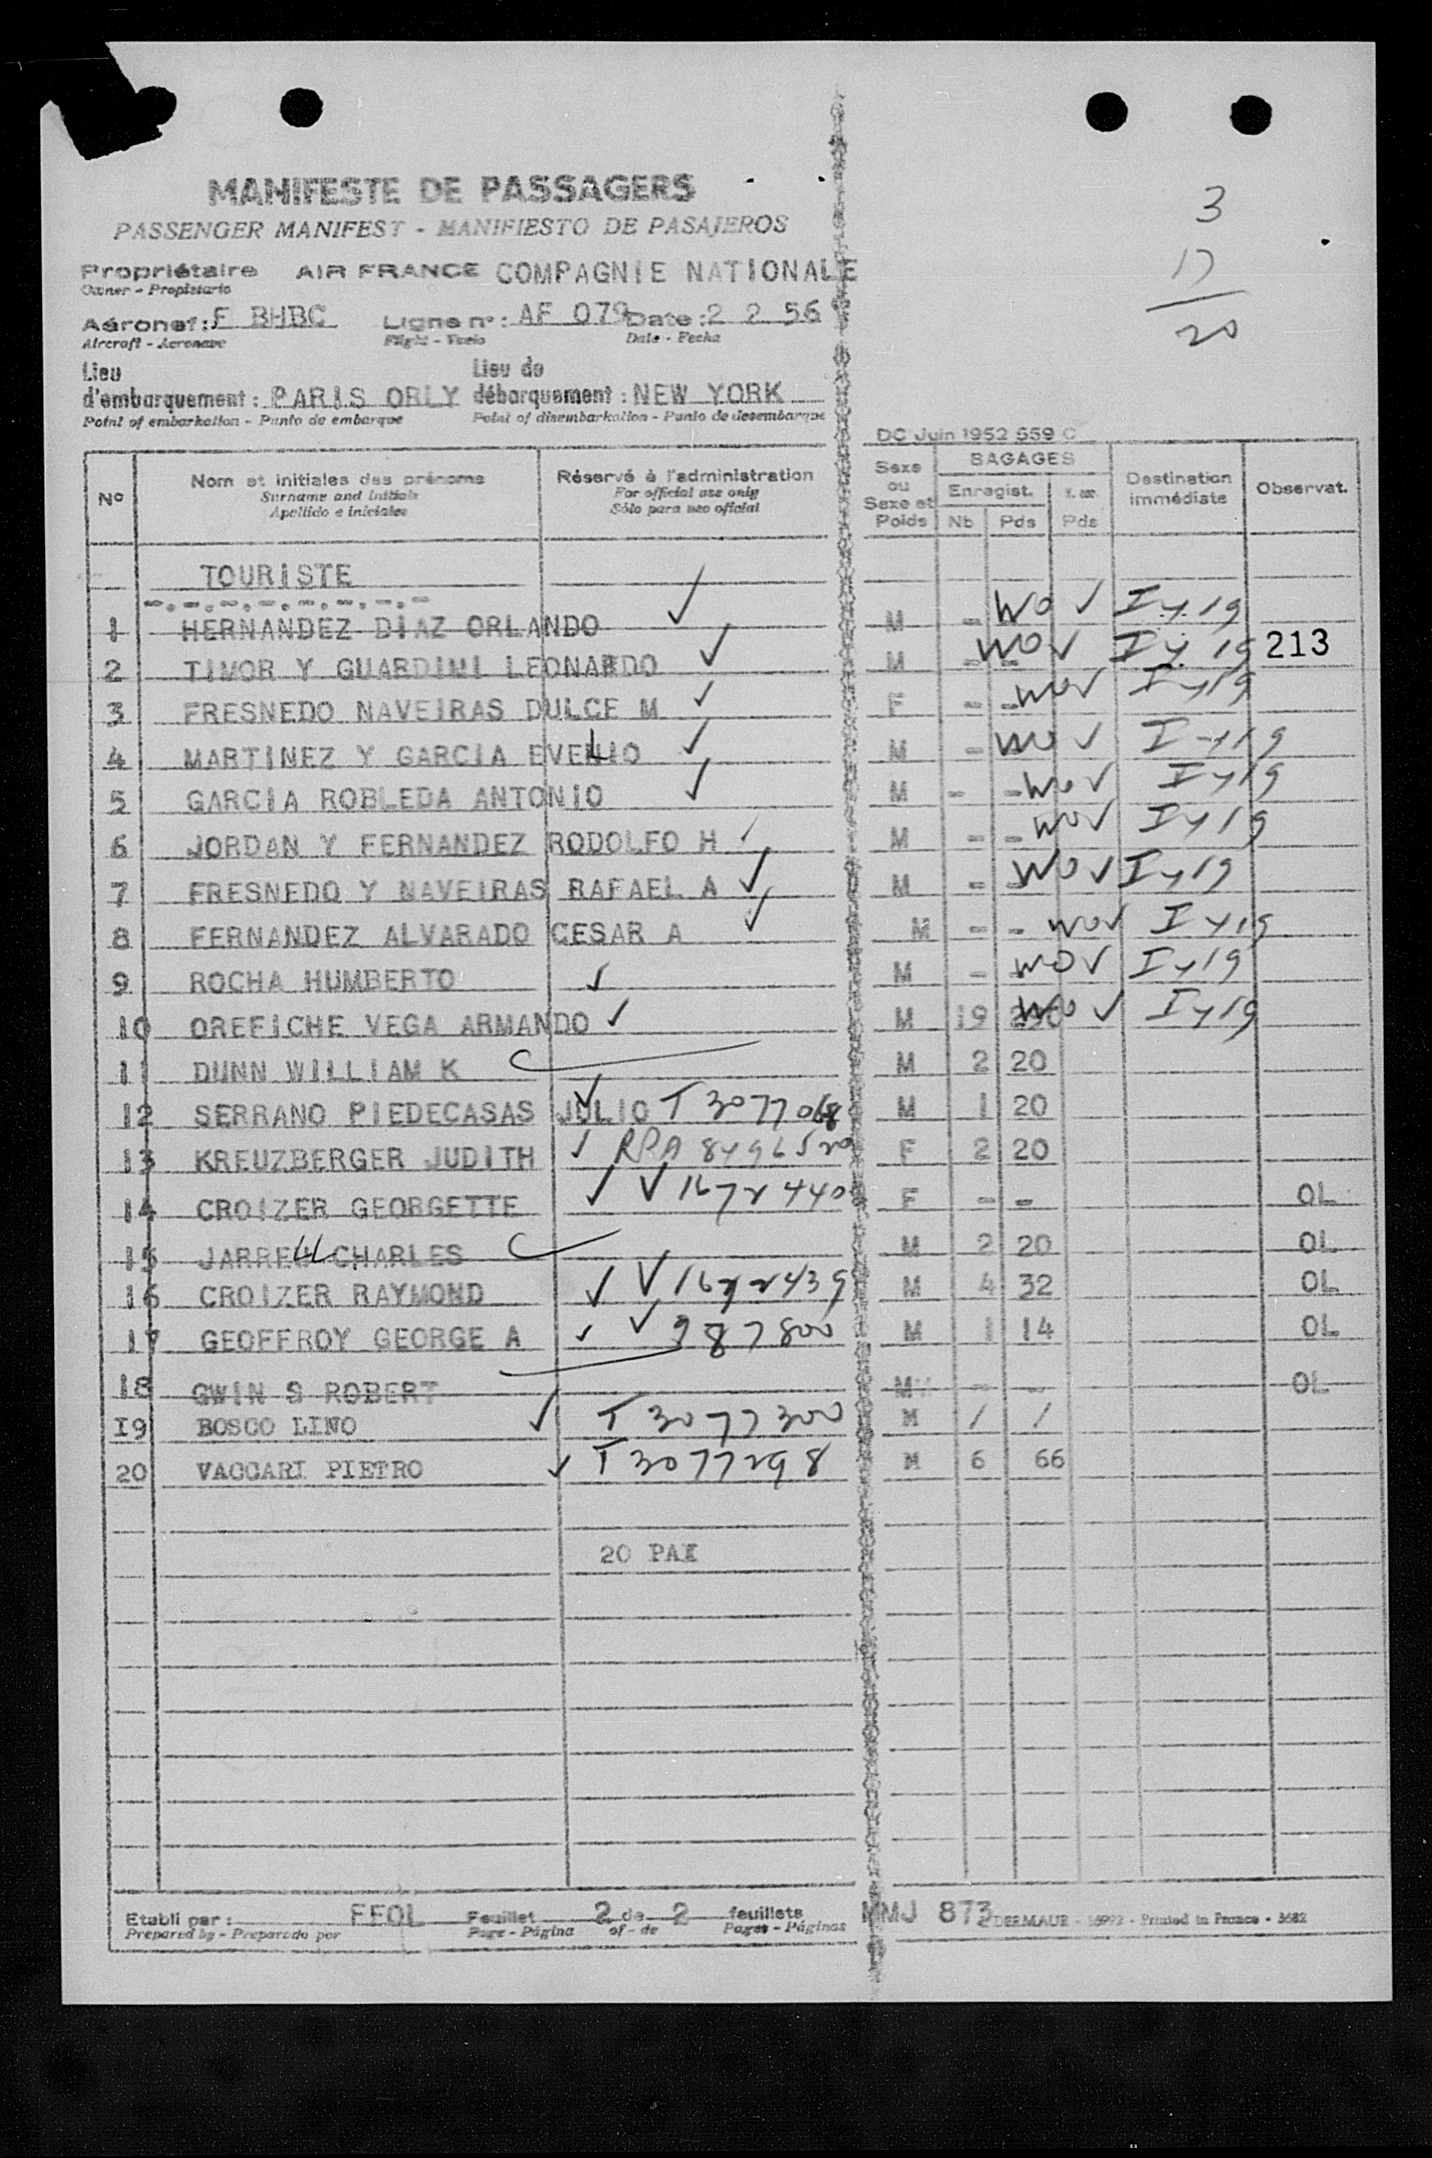 MANIFESTE DE PASSAGERS
PASSENGER MANIFEST - MANIFIESTO DE PASAJEROS
3
17
20
Propriétaire AIR FRANCE COMPAGNIE NATIONALE
Owner - Propietario
Aéronef: F BHBC Ligne n°: AF 079 Date: 2 2 56
Aircraft - Aeronave Flight - Vuelo Date - Fecha
Lieu d'embarquement: PARIS ORLY Lieu de débarquement: NEW YORK
Point of embarkation - Punto de embarque Point of disembarkation - Punto de desembarque
DC Juin 1952 559 C
N° Nom et initiales des prénoms Réservé à l'administration Sexe ou Sexe et Poids BAGAGES Enregist. Nb Pds Pds Destination immédiate Observat.
Surname and initials For official use only
Apellido e iniciales Sólo para uso oficial
TOURISTE
1 HERNANDEZ DIAZ ORLANDO ✓ M - WOV I-y-19
2 TIMOR Y GUARDINI LEONARDO ✓ M - - WOV I-y-19 213
3 FRESNEDO NAVEIRAS DULCE M ✓ F - - WOV I-y-19
4 MARTINEZ Y GARCIA EVELIO ✓ M - WOV I-y-19
5 GARCIA ROBLEDA ANTONIO ✓ M - - WOV I-y-19
6 JORDAN Y FERNANDEZ RODOLFO H ✓ M - - WOV I-y-19
7 FRESNEDO Y NAVEIRAS RAFAEL A ✓ M - - WOV I-y-19
8 FERNANDEZ ALVARADO CESAR A ✓ M - - WOV I-y-19
9 ROCHA HUMBERTO ✓ M - WOV I-y-19
10 OREFICHE VEGA ARMANDO ✓ M 19 WOV I-y-19
11 DUNN WILLIAM K M 2 20
12 SERRANO PIEDECASAS JULIO ✓ T 3077068 M 1 20
13 KREUZBERGER JUDITH ✓ F 2 20
14 CROIZER GEORGETTE ✓ V 1672440 F - - OL
15 JARRELL CHARLES M 2 20 OL
16 CROIZER RAYMOND ✓ V 1672439 M 4 32 OL
17 GEOFFROY GEORGE A ✓ V 987800 M 1 14 OL
18 GWIN S ROBERT M - - OL
19 BOSCO LINO ✓ T 3077300 M / /
20 VACCARI PIETRO ✓ T 3077298 M 6 66
20 PAX
Etabli par: FFOL Feuillet 2 de 2 feuillets MMJ 873 DERMAUR - Printed in France - 3682
Prepared by - Preparado por Page - Página of - de Pages - Páginas